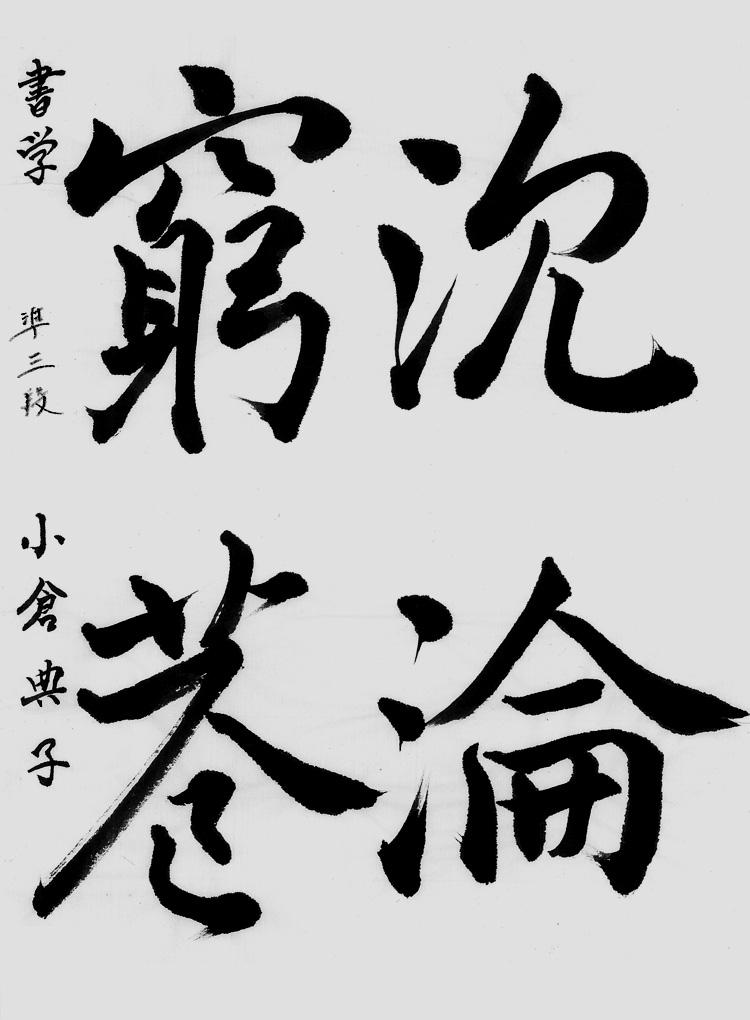 沈淪
窮巷
書学 準三段 小倉典子